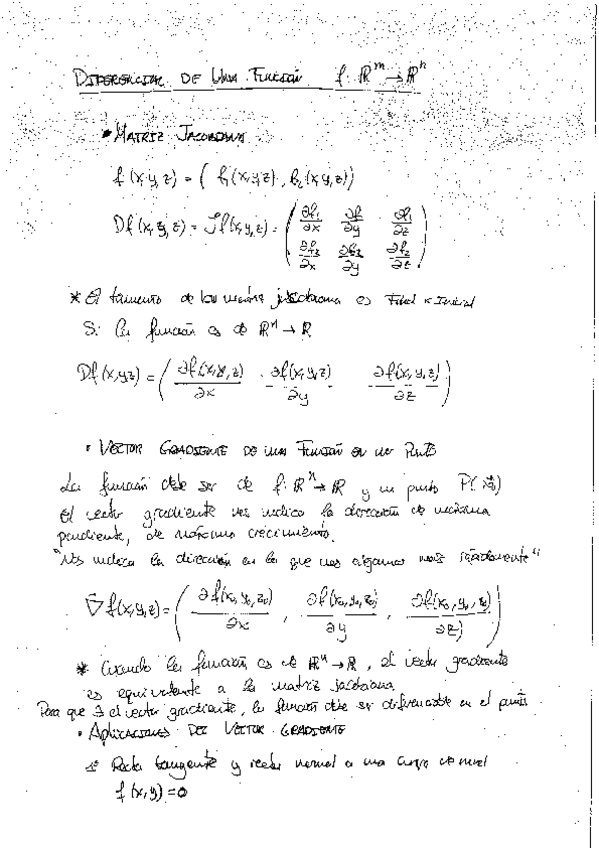 DIFERENCIAL DE UNA FUNCIÓN f: ℝᵐ → ℝⁿ
• MATRIZ JACOBIANA
f(x,y,z) = ( f₁(x,y,z), f₂(x,y,z))
Df(x,y,z) = Jf(x,y,z) = ( ∂f₁/∂x ∂f₁/∂y ∂f₁/∂z
∂f₂/∂x ∂f₂/∂y ∂f₂/∂z )
* El tamaño de la matriz jacobiana es Final x Inicial
Si la función es de ℝⁿ → ℝ
Df(x,y,z) = ( ∂f(x,y,z)/∂x ∂f(x,y,z)/∂y ∂f(x,y,z)/∂z )
• VECTOR GRADIENTE DE UNA FUNCIÓN EN UN PUNTO
La función debe ser de f: ℝⁿ → ℝ y un punto P(x₀)
El vector gradiente nos indica la dirección de máxima
pendiente, de máximo crecimiento.
"Nos indica la dirección en la que nos alejamos más rápidamente"
∇f(x,y,z) = ( ∂f(x₀,y₀,z₀)/∂x , ∂f(x₀,y₀,z₀)/∂y , ∂f(x₀,y₀,z₀)/∂z )
* Cuando la función es de ℝⁿ → ℝ, el vector gradiente
es equivalente a la matriz jacobiana
Para que ∃ el vector gradiente, la función debe ser diferenciable en el punto
• APLICACIONES DEL VECTOR GRADIENTE
1º Recta tangente y recta normal a una curva de nivel
f(x,y)=0